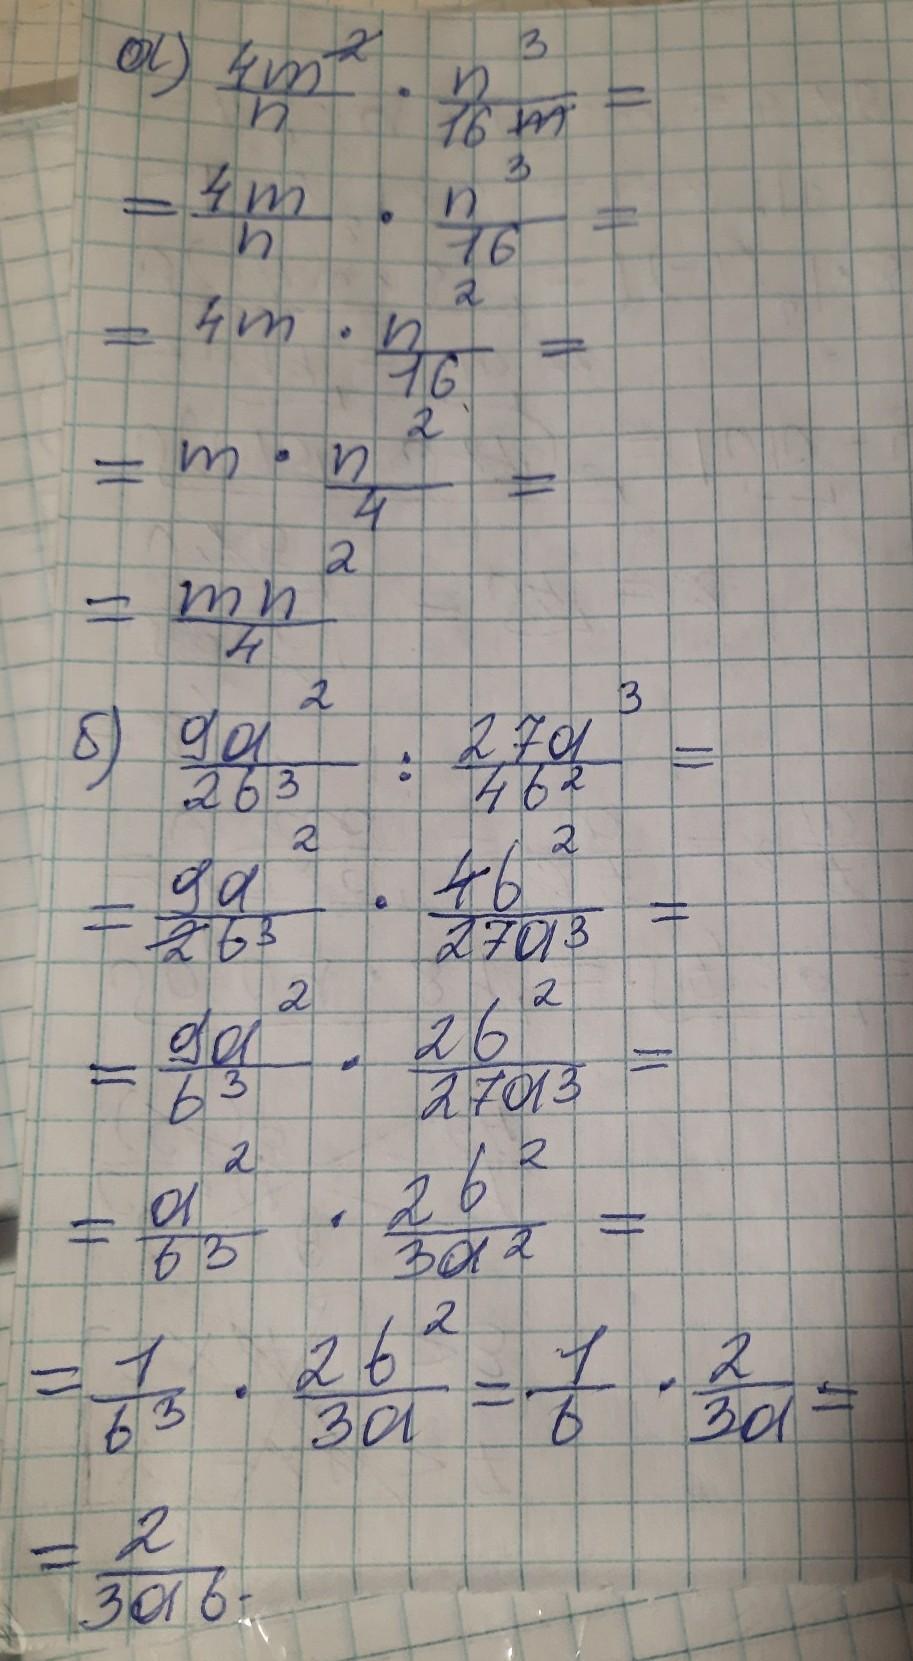 а) 4m²/n · n³/16m =
= 4m/n · n³/16 =
= 4m · n²/16 =
= m · n²/4 =
= mn²/4
б) 9a²/2b³ : 27a³/4b² =
= 9a²/2b³ · 4b²/27a³ =
= 9a²/b³ · 2b²/27a³ =
= a²/b³ · 2b²/3a² =
= 1/b³ · 2b²/3a = 1/b · 2/3a =
= 2/3ab.